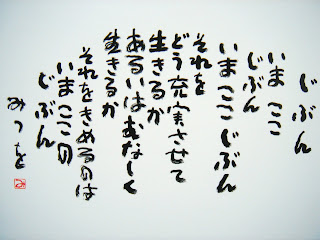 じぶん
いま ここ
じぶん
いま ここ じぶん
それを
どう充実させて
生きるか
あるいはむなしく
生きるか
それをきめるのは
いまここの
じぶん
みつを